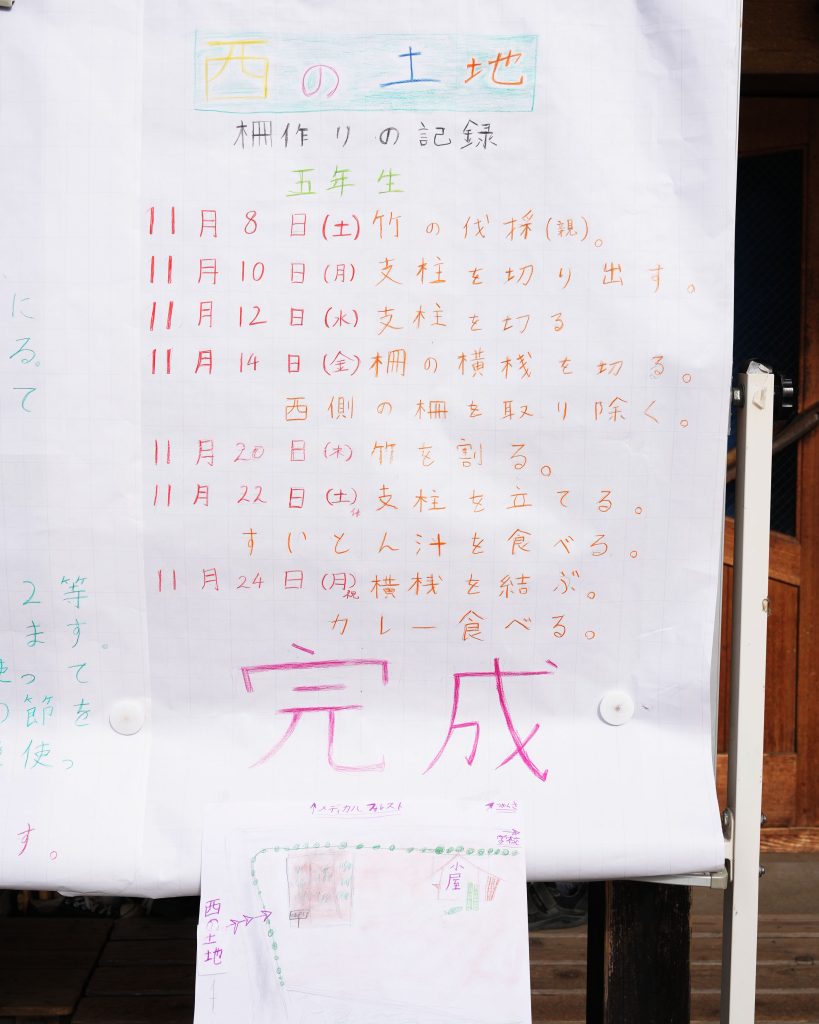 西の土地
柵作りの記録
五年生
11月8日(土)竹の伐採(親)。
11月10日(月)支柱を切り出す。
11月12日(水)支柱を切る
11月14日(金)柵の横桟を切る。
西側の柵を取り除く。
11月20日(木)竹を割る。
11月22日(土)支柱を立てる。
休
すいとん汁を食べる。
11月24日(月)横桟を結ぶ。
祝
カレー食べる。
完成
に
る。
て
2等
ます。
使って
の節を
使っ
す。
↑メディカルフォレスト
→学校
小屋
西の土地